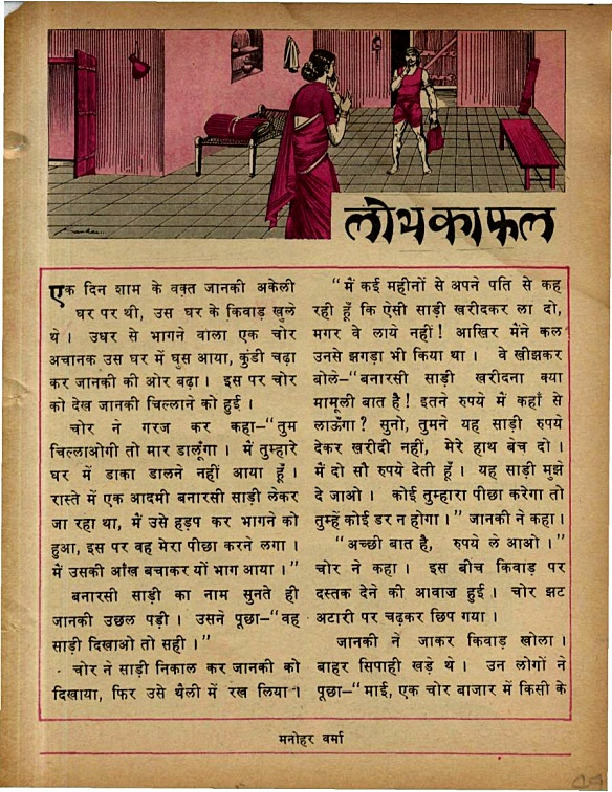 लोभ का फल
एक दिन शाम के वक़्त जानकी अकेली
घर पर थी, उस घर के किवाड़ खुले
थे। उधर से भागने वाला एक चोर
अचानक उस घर में घुस आया, कुंडी चढ़ा
कर जानकी की ओर बढ़ा। इस पर चोर
को देख जानकी चिल्लाने को हुई।
चोर ने गरज कर कहा–“तुम
चिल्लाओगी तो मार डालूंगा। मैं तुम्हारे
घर में डाका डालने नहीं आया हूँ।
रास्ते में एक आदमी बनारसी साड़ी लेकर
जा रहा था, मैं उसे हड़प कर भागने को
हुआ, इस पर वह मेरा पीछा करने लगा।
मैं उसकी आँख बचाकर यों भाग आया।”
बनारसी साड़ी का नाम सुनते ही
जानकी उछल पड़ी। उसने पूछा–“वह
साड़ी दिखाओ तो सही।”
चोर ने साड़ी निकाल कर जानकी को
दिखाया, फिर उसे थैली में रख लिया।
“मैं कई महीनों से अपने पति से कह
रही हूँ कि ऐसी साड़ी खरीदकर ला दो,
मगर वे लाये नहीं! आखिर मैंने कल
उनसे झगड़ा भी किया था। वे खीझकर
बोले–“बनारसी साड़ी खरीदना क्या
मामूली बात है! इतने रुपये में कहाँ से
लाऊँगा? सुनो, तुमने यह साड़ी रुपये
देकर खरीदी नहीं, मेरे हाथ बेच दो।
में दो सौ रुपये देती हूँ। यह साड़ी मुझे
दे जाओ। कोई तुम्हारा पीछा करेगा तो
तुम्हें कोई डर न होगा।” जानकी ने कहा।
“अच्छी बात है, रुपये ले आओ।”
चोर ने कहा। इस बीच किवाड़ पर
दस्तक देने की आवाज हुई। चोर झट
अटारी पर चढ़कर छिप गया।
जानकी ने जाकर किवाड़ खोला।
बाहर सिपाही खड़े थे। उन लोगों ने
पूछा–“माई, एक चोर बाजार में किसी के
मनोहर वर्मा